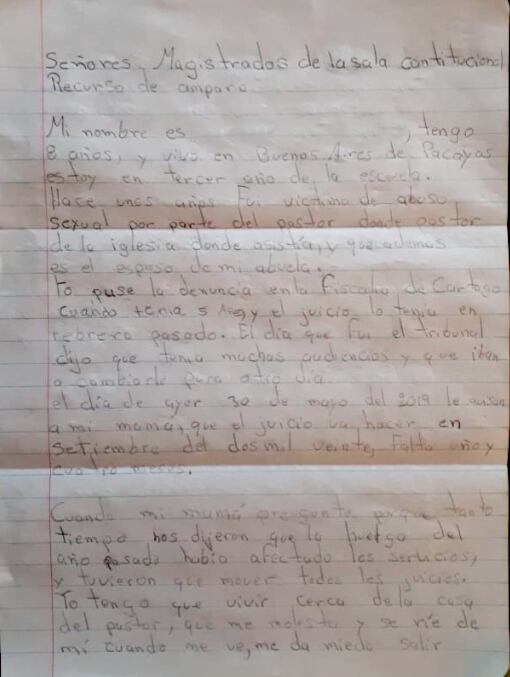 Señores, Magistrados de la sala contitucional
Recurso de amparo
Mi nombre es , tengo
8 años, y vivo en Buenos Aires de Pacayas
estoy en tercer año de la escuela.
Hace unos años fui victima de abuso
sexual por parte del pastor donde pastor
de la iglesia donde asistía, y que ademas
es el esposo de mi abuela.
Yo puse la denuncia en la Fiscalia de Cartago
cuando tenia 5 años y el juicio lo tenia en
febrero pasado. El día que fui el tribunal
dijo que tenia muchas audiencias y que iban
a cambiarlo para otro dia.
el día de ayer 30 de mayo del 2019 le avisan
a mi mamá, que el juicio va hacer en
setiembre del dos mil veinte, falta año y
cuatro meses.
Cuando mi mamá pregunto porque tanto
tiempo nos dijeron que la huelga del
año pasado habia afectado los servicios,
y tuvieron que mover todos los juicios.
Yo tengo que vivir cerca de la casa
del pastor, que me molesta y se ríe de
mí cuando me ve, me da miedo salir